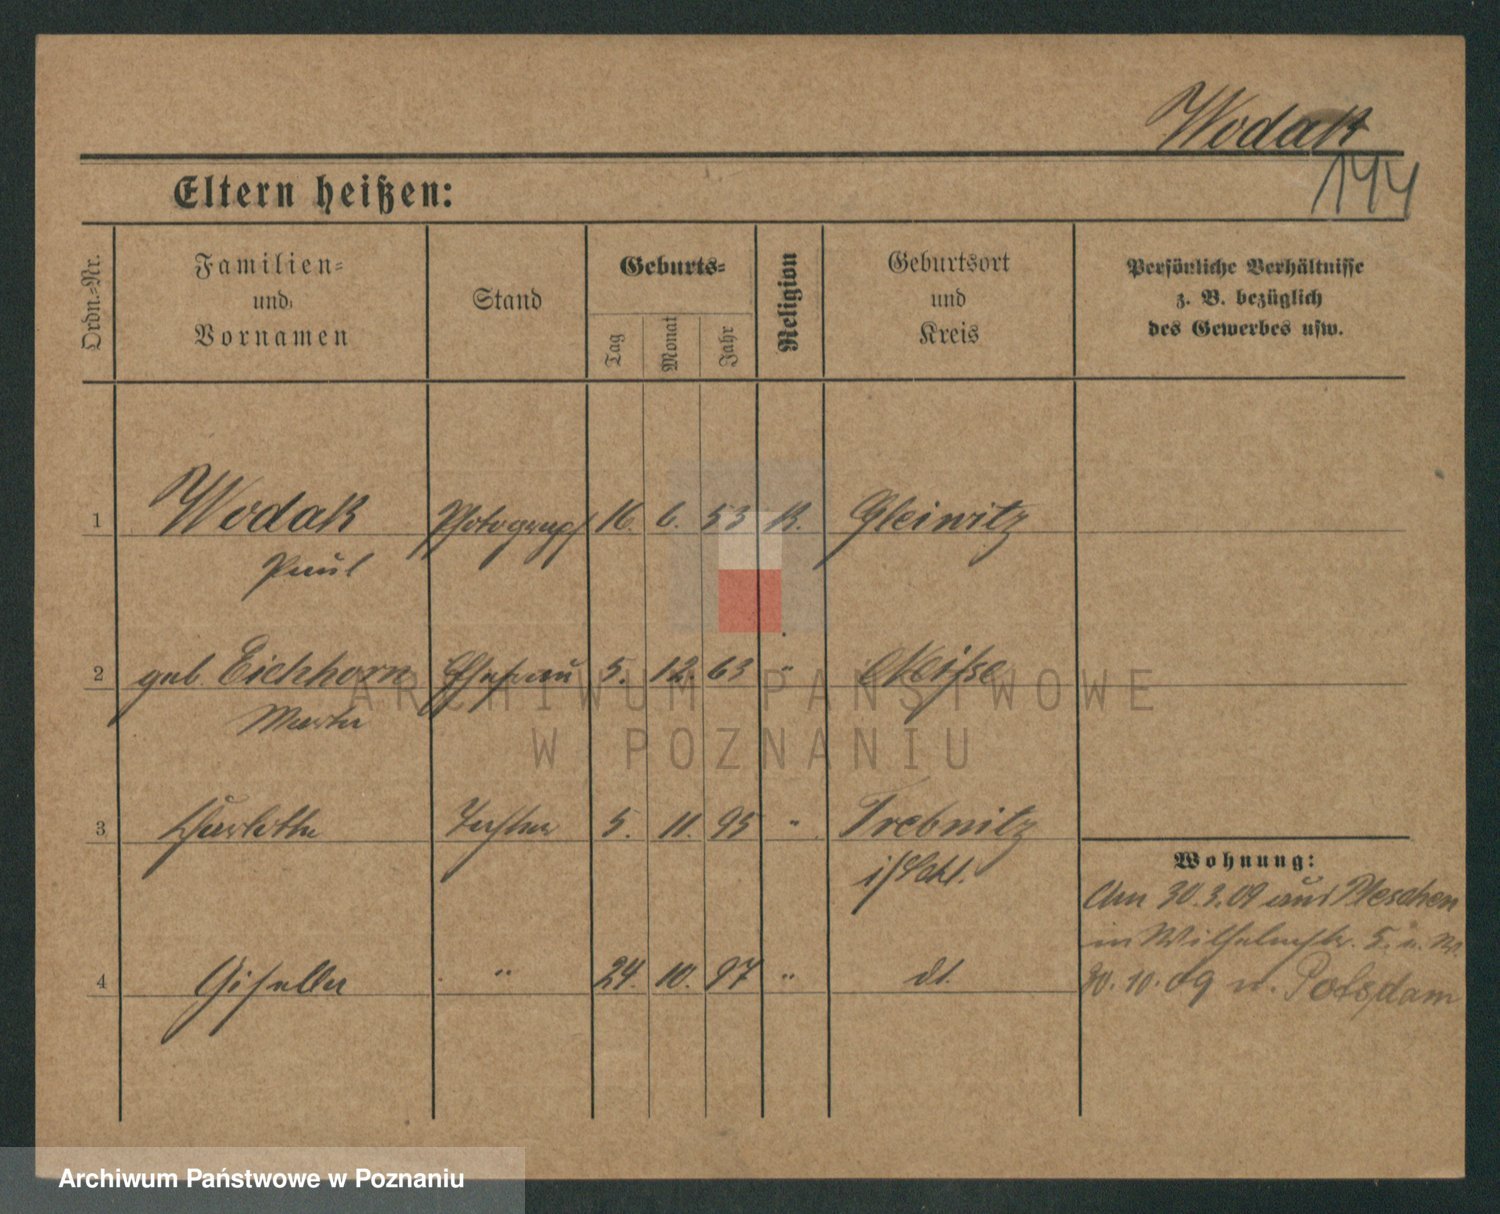 Wodak
144
Eltern heißen:
Ordn.-Nr.
Familien-
und
Vornamen
Stand
Geburts-
Tag
Monat
Jahr
Religion
Geburtsort
und
Kreis
Persönliche Verhältnisse
z. B. bezüglich
des Gewerbes usw.
1 Wodak Photograph 16. 6. 53 K. Gleiwitz
Paul
2 geb. Eichhorn Ehefrau 5. 12. 63 " Neisse
Marta
3 Tochter 5. 11. 95 " Trebnitz
i/Schl.
4 Gisella " 24. 10. 97 " dt.
Wohnung:
Am 30.3.09 aus Pleschen
in Wilhelmstr. 5.
30.10.09 n. Potsdam
ARCHIWUM PAŃSTWOWE
W POZNANIU
Archiwum Państwowe w Poznaniu